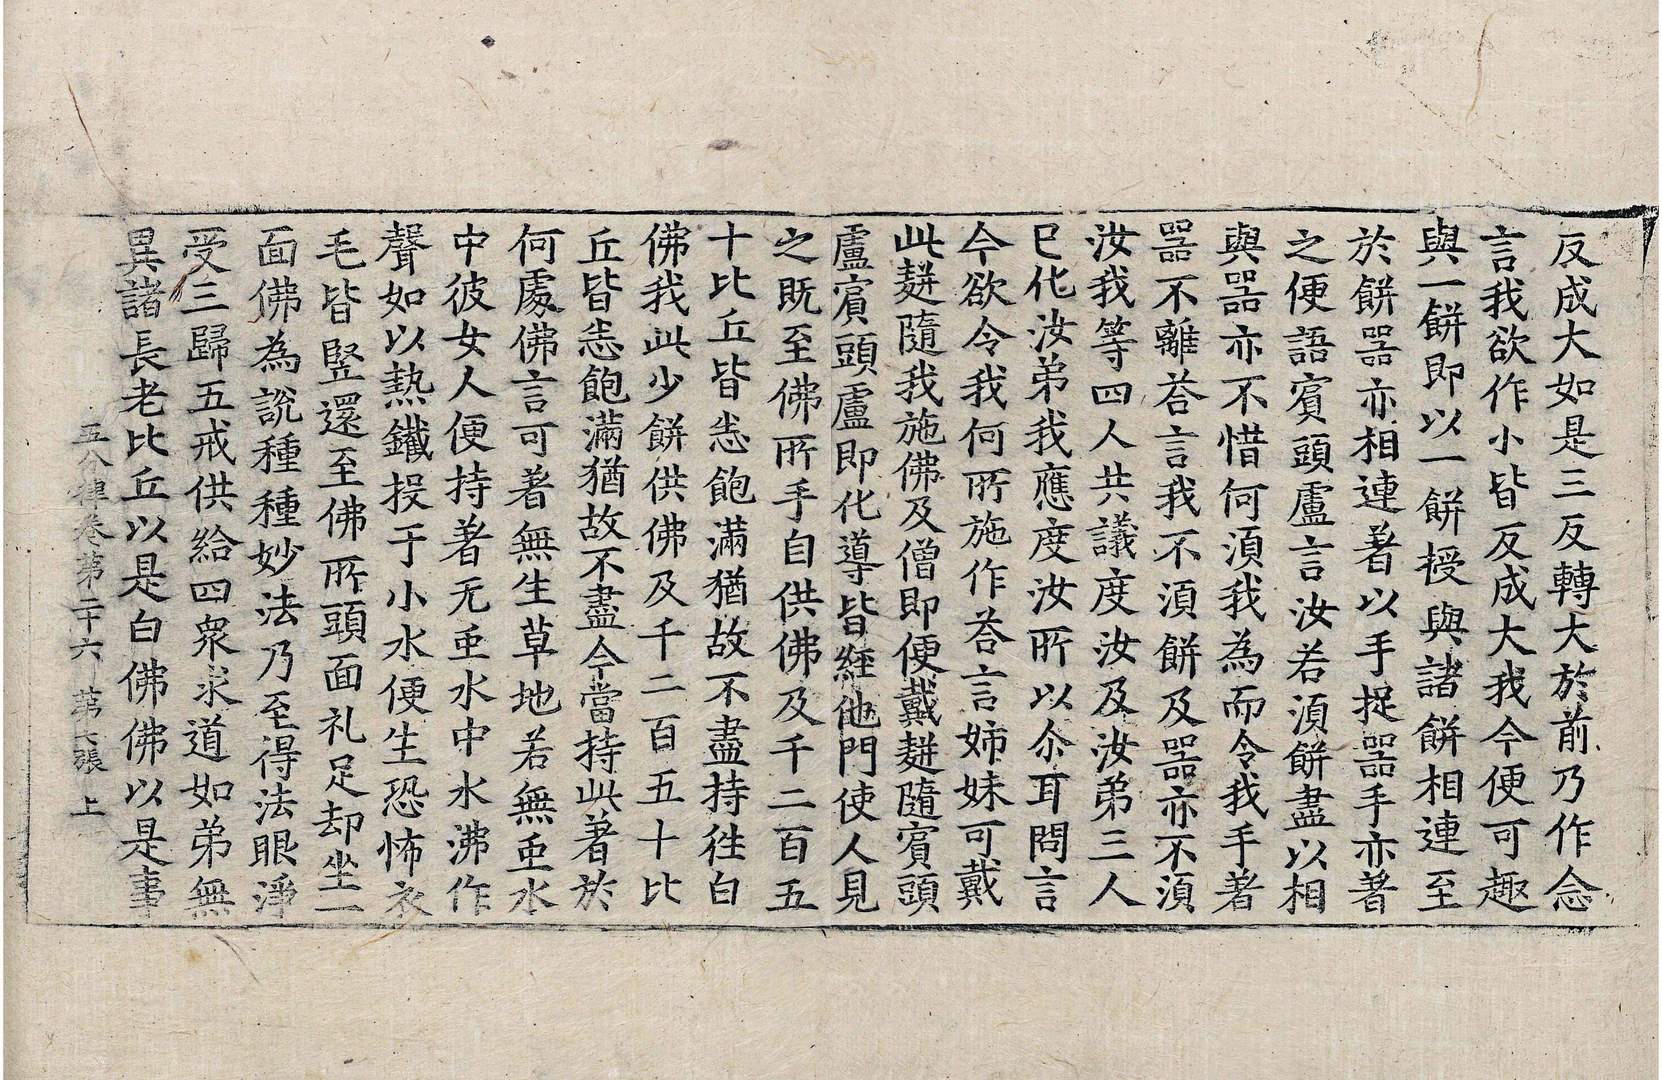 反成大如是三反轉大於前乃作念
言我欲作小皆反成大我今便可趣
與一餅即以一餅授與諸餅相連至
於餅器亦相連著以手捉器手亦著
之便語賓頭盧言汝若須餅盡以相
與器亦不惜何須我為而令我手著
器不離荅言我不須餅及器亦不須
汝我等四人共議度汝及汝弟三人
已化汝弟我應度汝所以尒耳問言
今欲令我何所施作荅言姊妹可戴
此䴵隨我施佛及僧即便戴䴵隨賓頭
盧賓頭盧即化導皆經他門使人見
之既至佛所手自供佛及千二百五
十比丘皆悉飽滿猶故不盡持往白
佛我此少餅供佛及千二百五十比
丘皆悉飽滿猶故不盡今當持此著於
何處佛言可著無生草地若無䖝水
中彼女人便持著无䖝水中水沸作
聲如以熱鐵投于小水便生恐怖衣
毛皆竪還至佛所頭面礼足却坐一
面佛為說種種妙法乃至得法眼淨
受三歸五戒供給四衆求道如弟無
異諸長老比丘以是白佛佛以是事
五分律卷第二十六 第七張 上